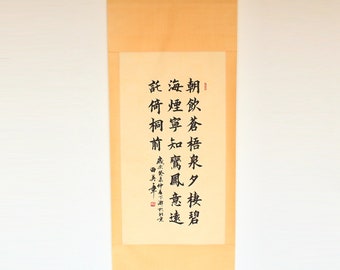 朝飲蒼梧泉夕棲碧
海煙寧知鸞鳳意遠
託倚桐前
歲次癸未仲春
田英章